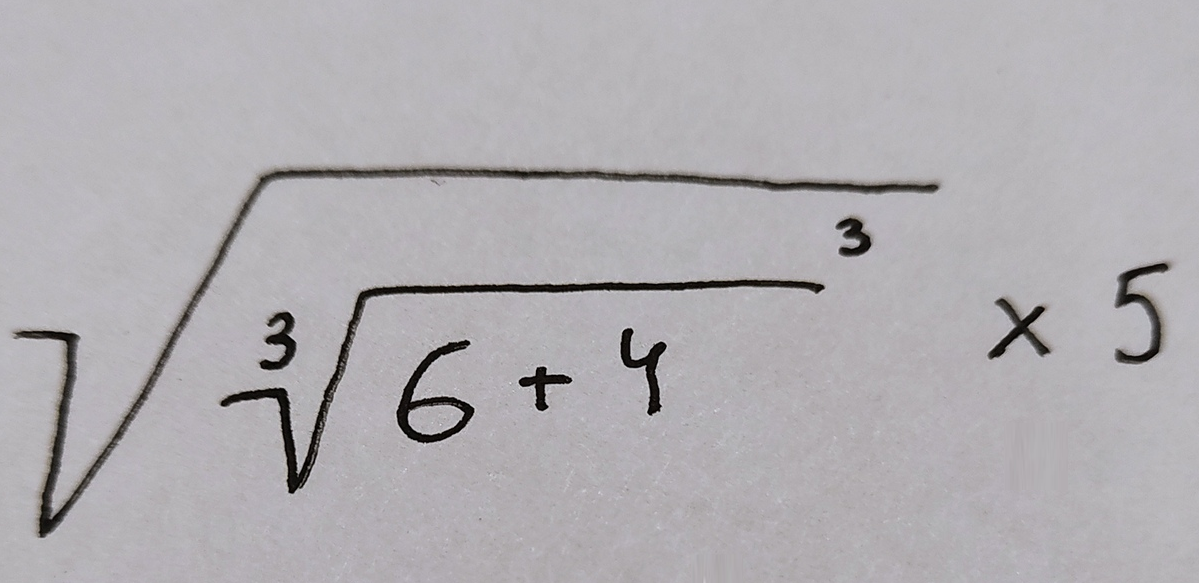 √(∛(6 + 4)³) × 5